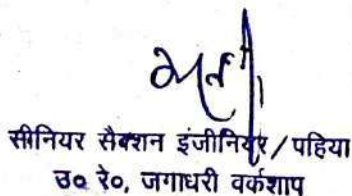 सीनियर सैक्शन इंजीनियर / पहिया
उ० रे०, जगाधरी वर्कशाप